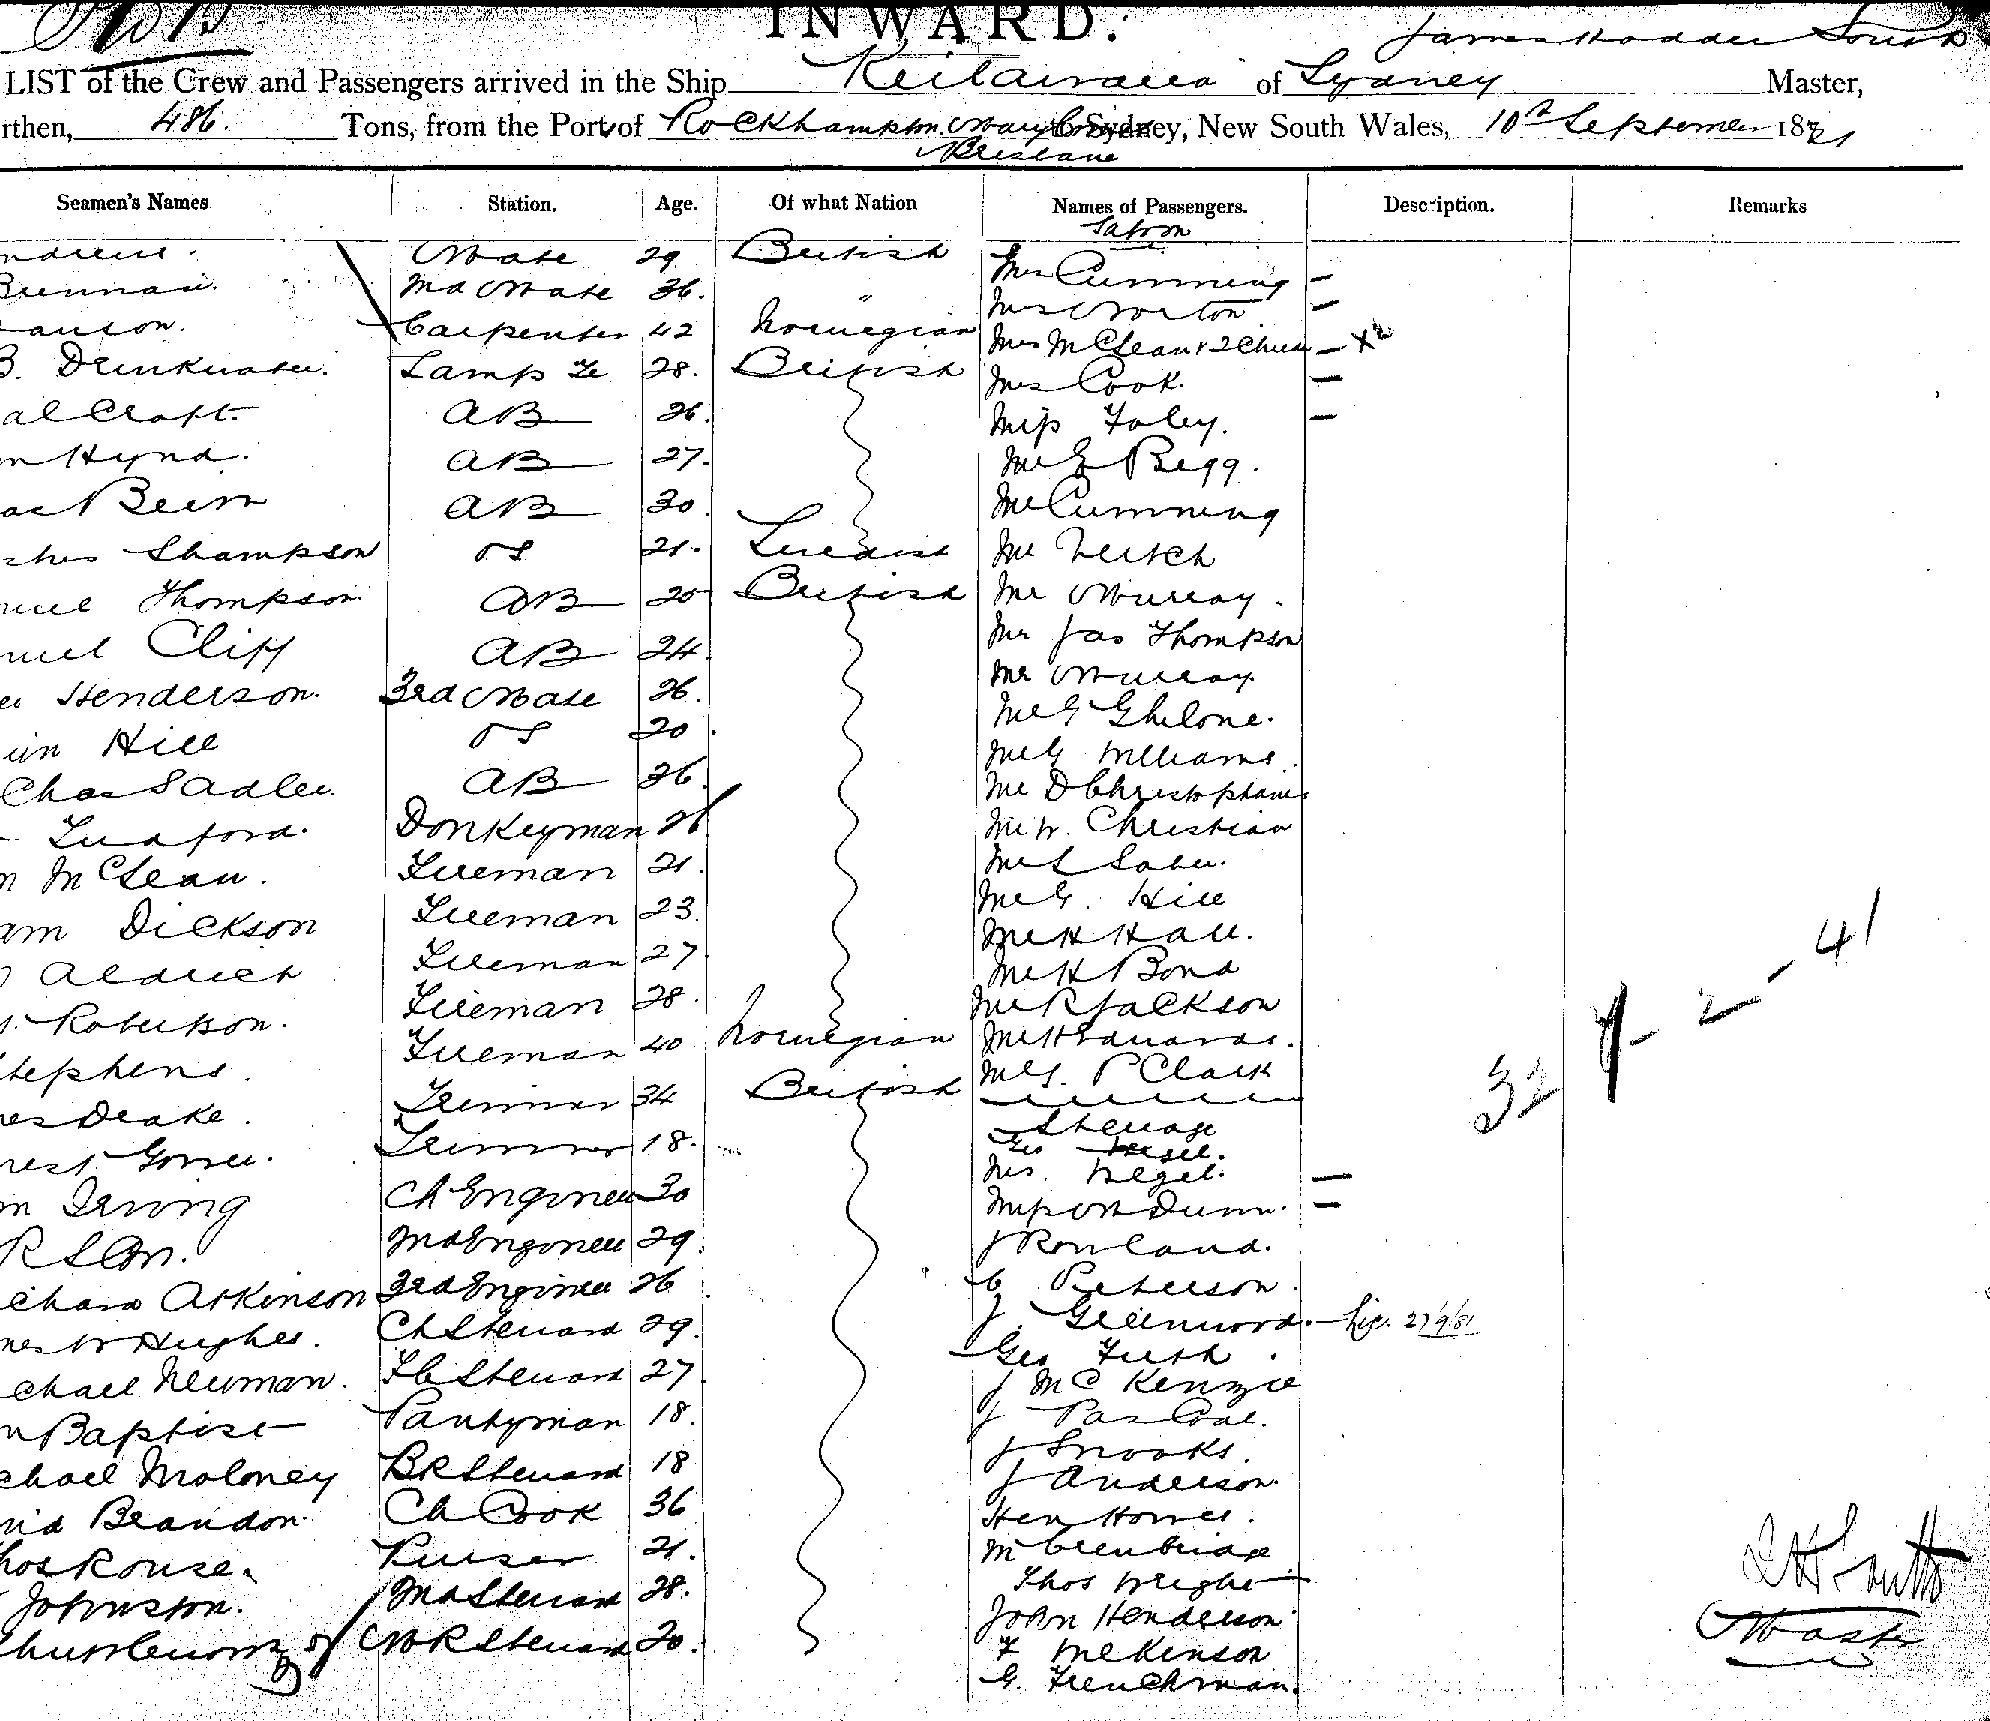 INWARD.
James Hodder South
LIST of the Crew and Passengers arrived in the Ship Keilawarra of Sydney Master,
rthen, 486. Tons, from the Port of Rockhampton, Maryboro to Sydney, New South Wales, 10th September 1881
Brisbane
Seamen's Names Station. Age. Of what Nation Names of Passengers. Description. Remarks
Saloon
ndrews. Mate 29 British Mrs Cumming —
Brennan. 2nd Mate 36. " Mrs Norton —
anson. Carpenter 42 Norwegian Mrs McLean & 2 Child — x2
B. Drinkwater. Lamp Tr 28. British Mrs Cook. —
al Craft. AB 26. Miss Foley. —
m Hynd. AB 27. Mr G Begg.
ac Beem AB 30. Mr Cumming
Shampson OS 21. Swedish Mr Veitch
muel Thompson AB 20 British Mr Murray.
muel Cliff AB 24. Mr Jas Thompson
Henderson. 3rd Mate 26. Mr Murray
Hill OS 20. Mr G
Chas Sadler. AB 26. Mr G Williams.
Ludford. Donkeyman 26 Mr D Christophans
m McLean. Fireman 21. Mr W. Christian
am Dickson Fireman 23. Mr L
Aldrich Fireman 27 Mr G. Hill
Robertson. Fireman 28. Mr H Hall.
Stephens. Fireman 40 Norwegian Mr H Bond
mes Drake. Trimmer 34 British Mr R Jackson
nest Trimmer 18. Mr H Edwards.
m Irving Ch Engineer 30 Mr J. P Clark
R S Orr. 2nd Engineer 29. Steerage
chard Atkinson 3rd Engineer 26
mes W Hughes. Ch Steward 29. Mrs. —
chael Newman. F C Steward 27 Miss M Dunn. —
n Baptist Pantryman 18. J Rowland.
chael Moloney B R Steward 18 C Peterson.
vid Brandon Ch Cook 36 J. Greenwood. — 27/9/81
hos Rouse. Purser 21. Geo Firth.
Johnston. 2nd Steward 28. J McKenzie
of M R Steward 20. J Pascoe.
J Snooks.
J Anderson.
Hen Howes.
M
Thos Wright
John Henderson
F McKinson
G. Frenchman.
32 9 - 2 - 41
Master